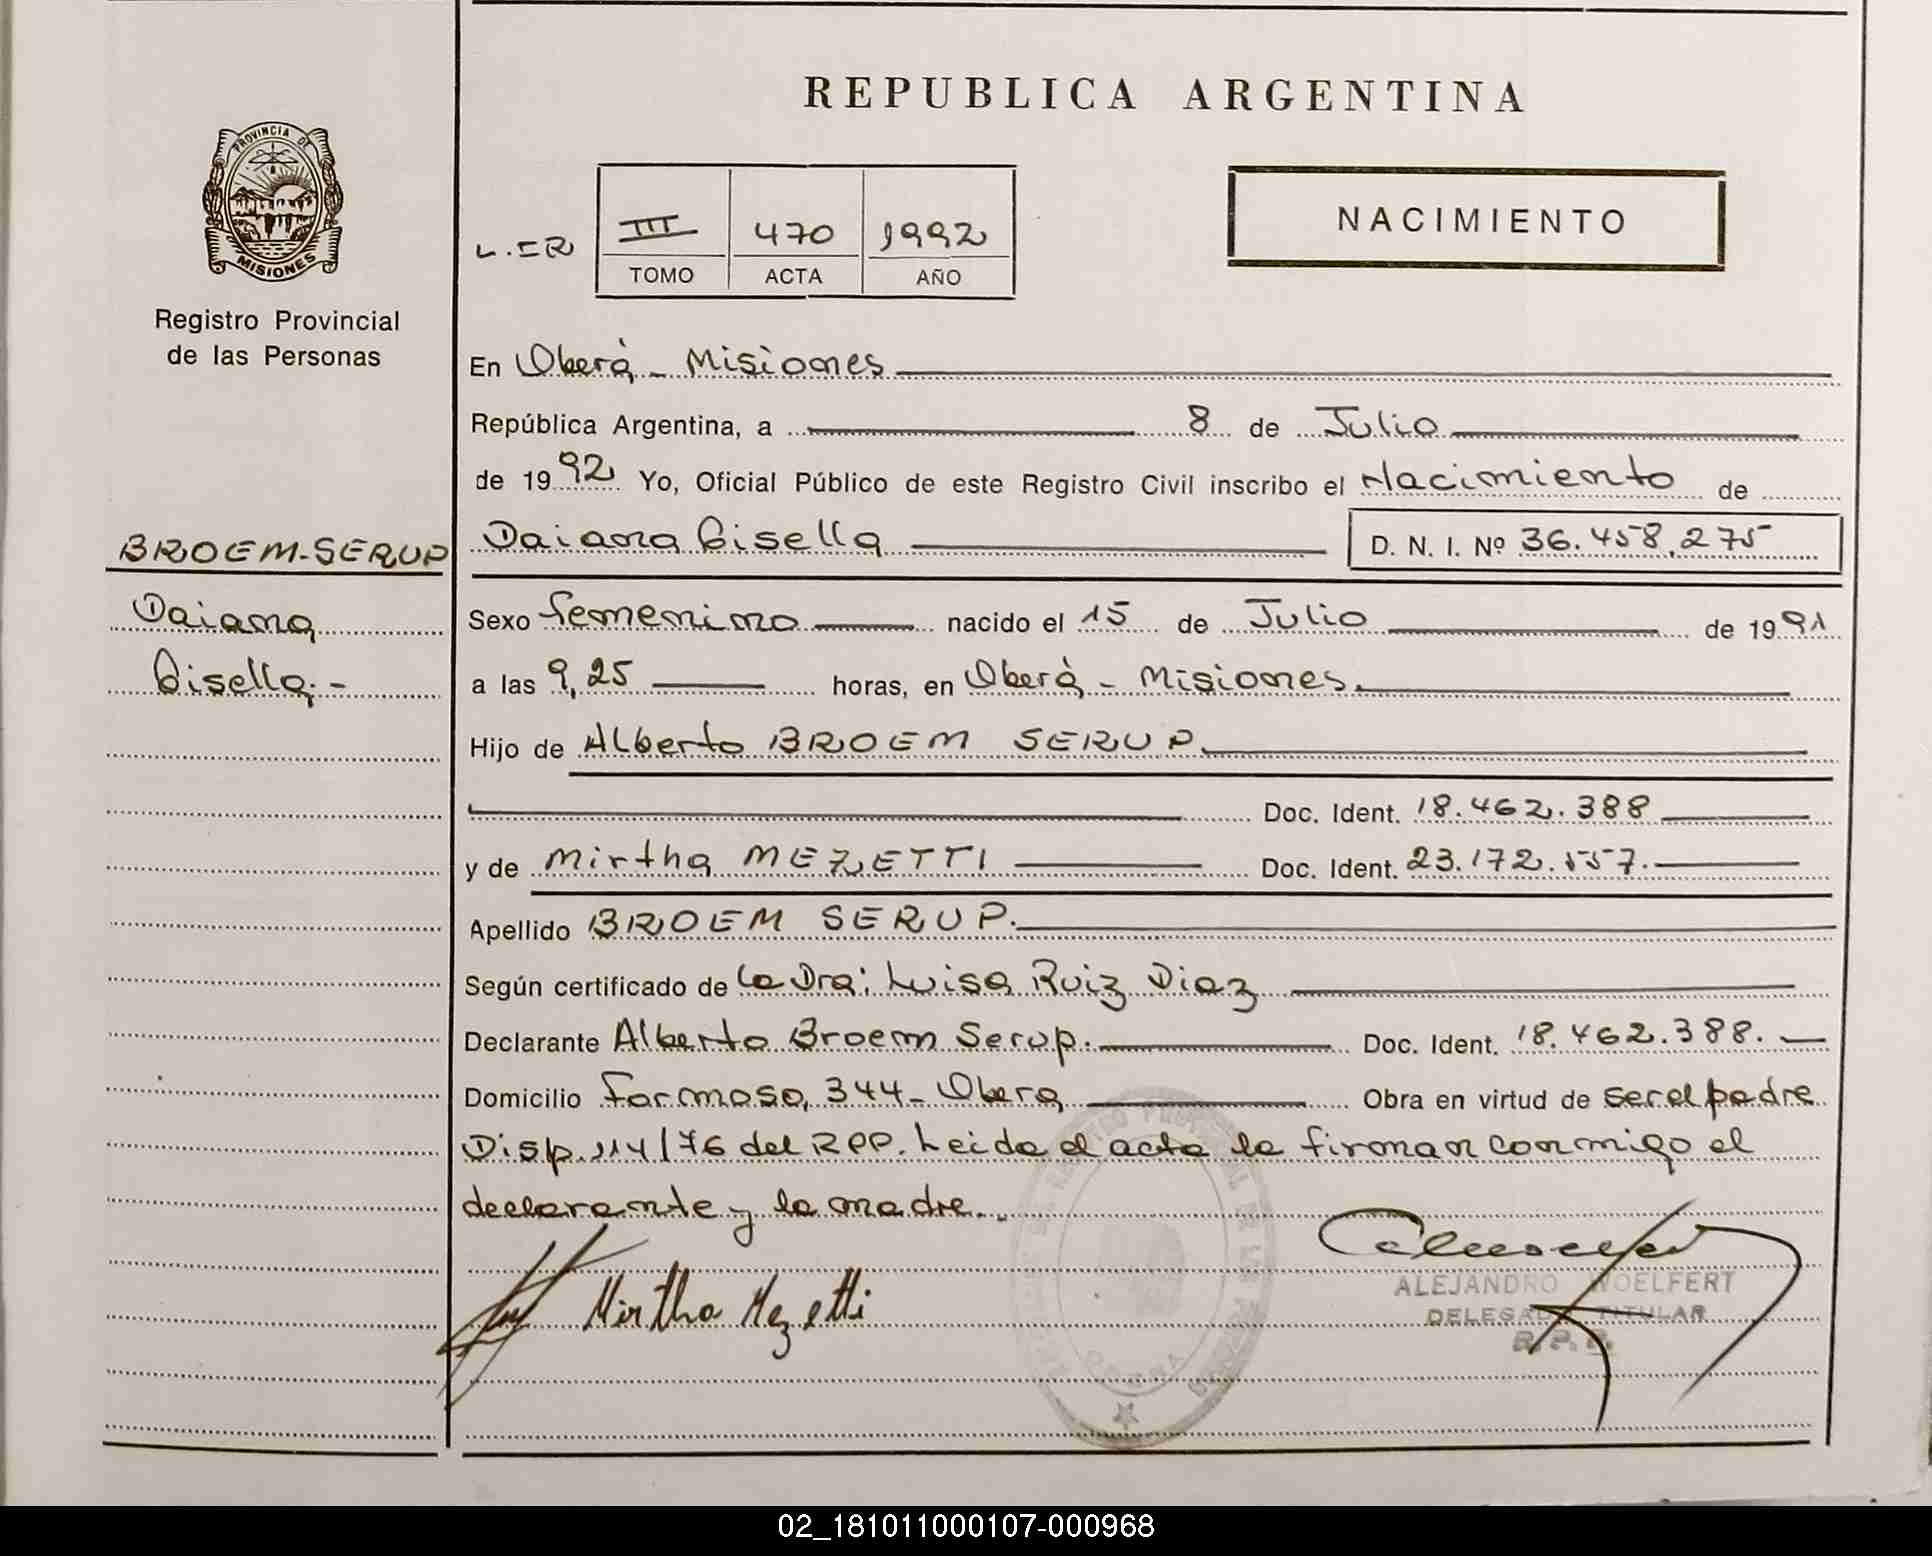 REPUBLICA ARGENTINA
PROVINCIA DE
MISIONES
Registro Provincial
de las Personas
NACIMIENTO
III 470 1992
TOMO ACTA AÑO
En Oberá - Misiones
República Argentina, a 8 de Julio
de 1992 Yo, Oficial Público de este Registro Civil inscribo el Nacimiento de
BROEM-SERUP
Daiana Gisella D. N. I. Nº 36.458.275
Daiana
Gisella.-
Sexo femenino nacido el 15 de Julio de 1991
a las 9,25 horas, en Oberá - Misiones.
Hijo de Alberto BROEM SERUP.
Doc. Ident. 18.462.388
y de Mirtha MEZETTI Doc. Ident. 23.172.557.
Apellido BROEM SERUP.
Según certificado de la Dra: Luisa Ruiz Diaz
Declarante Alberto Broem Serup. Doc. Ident. 18.462.388.
Domicilio Formosa, 344- Obera Obra en virtud de ser el padre
Disp. 114/76 del RPP. Leida el acta la firman conmigo el
declarante y la madre..
Mirtha Mezetti
ALEJANDRO WOELFERT
DELEGADO TITULAR
R.P.P.
OBERA
02_181011000107-000968